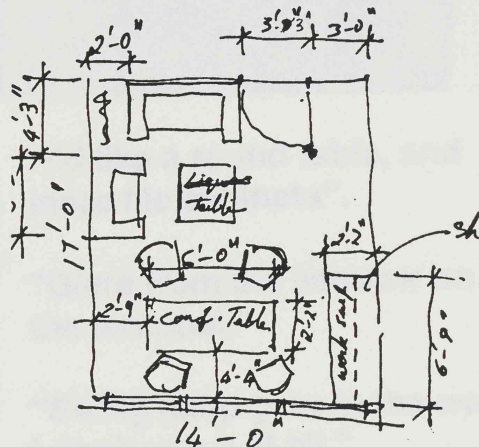 3'-3" 3'-0"
2'-0"
4'-3"
17'-0"
Liquor
Table
6'-0"
2'-2"
sh
2'-9"
Conf. Table
2'-2"
work surf
6'-8"
4'-4"
14-0